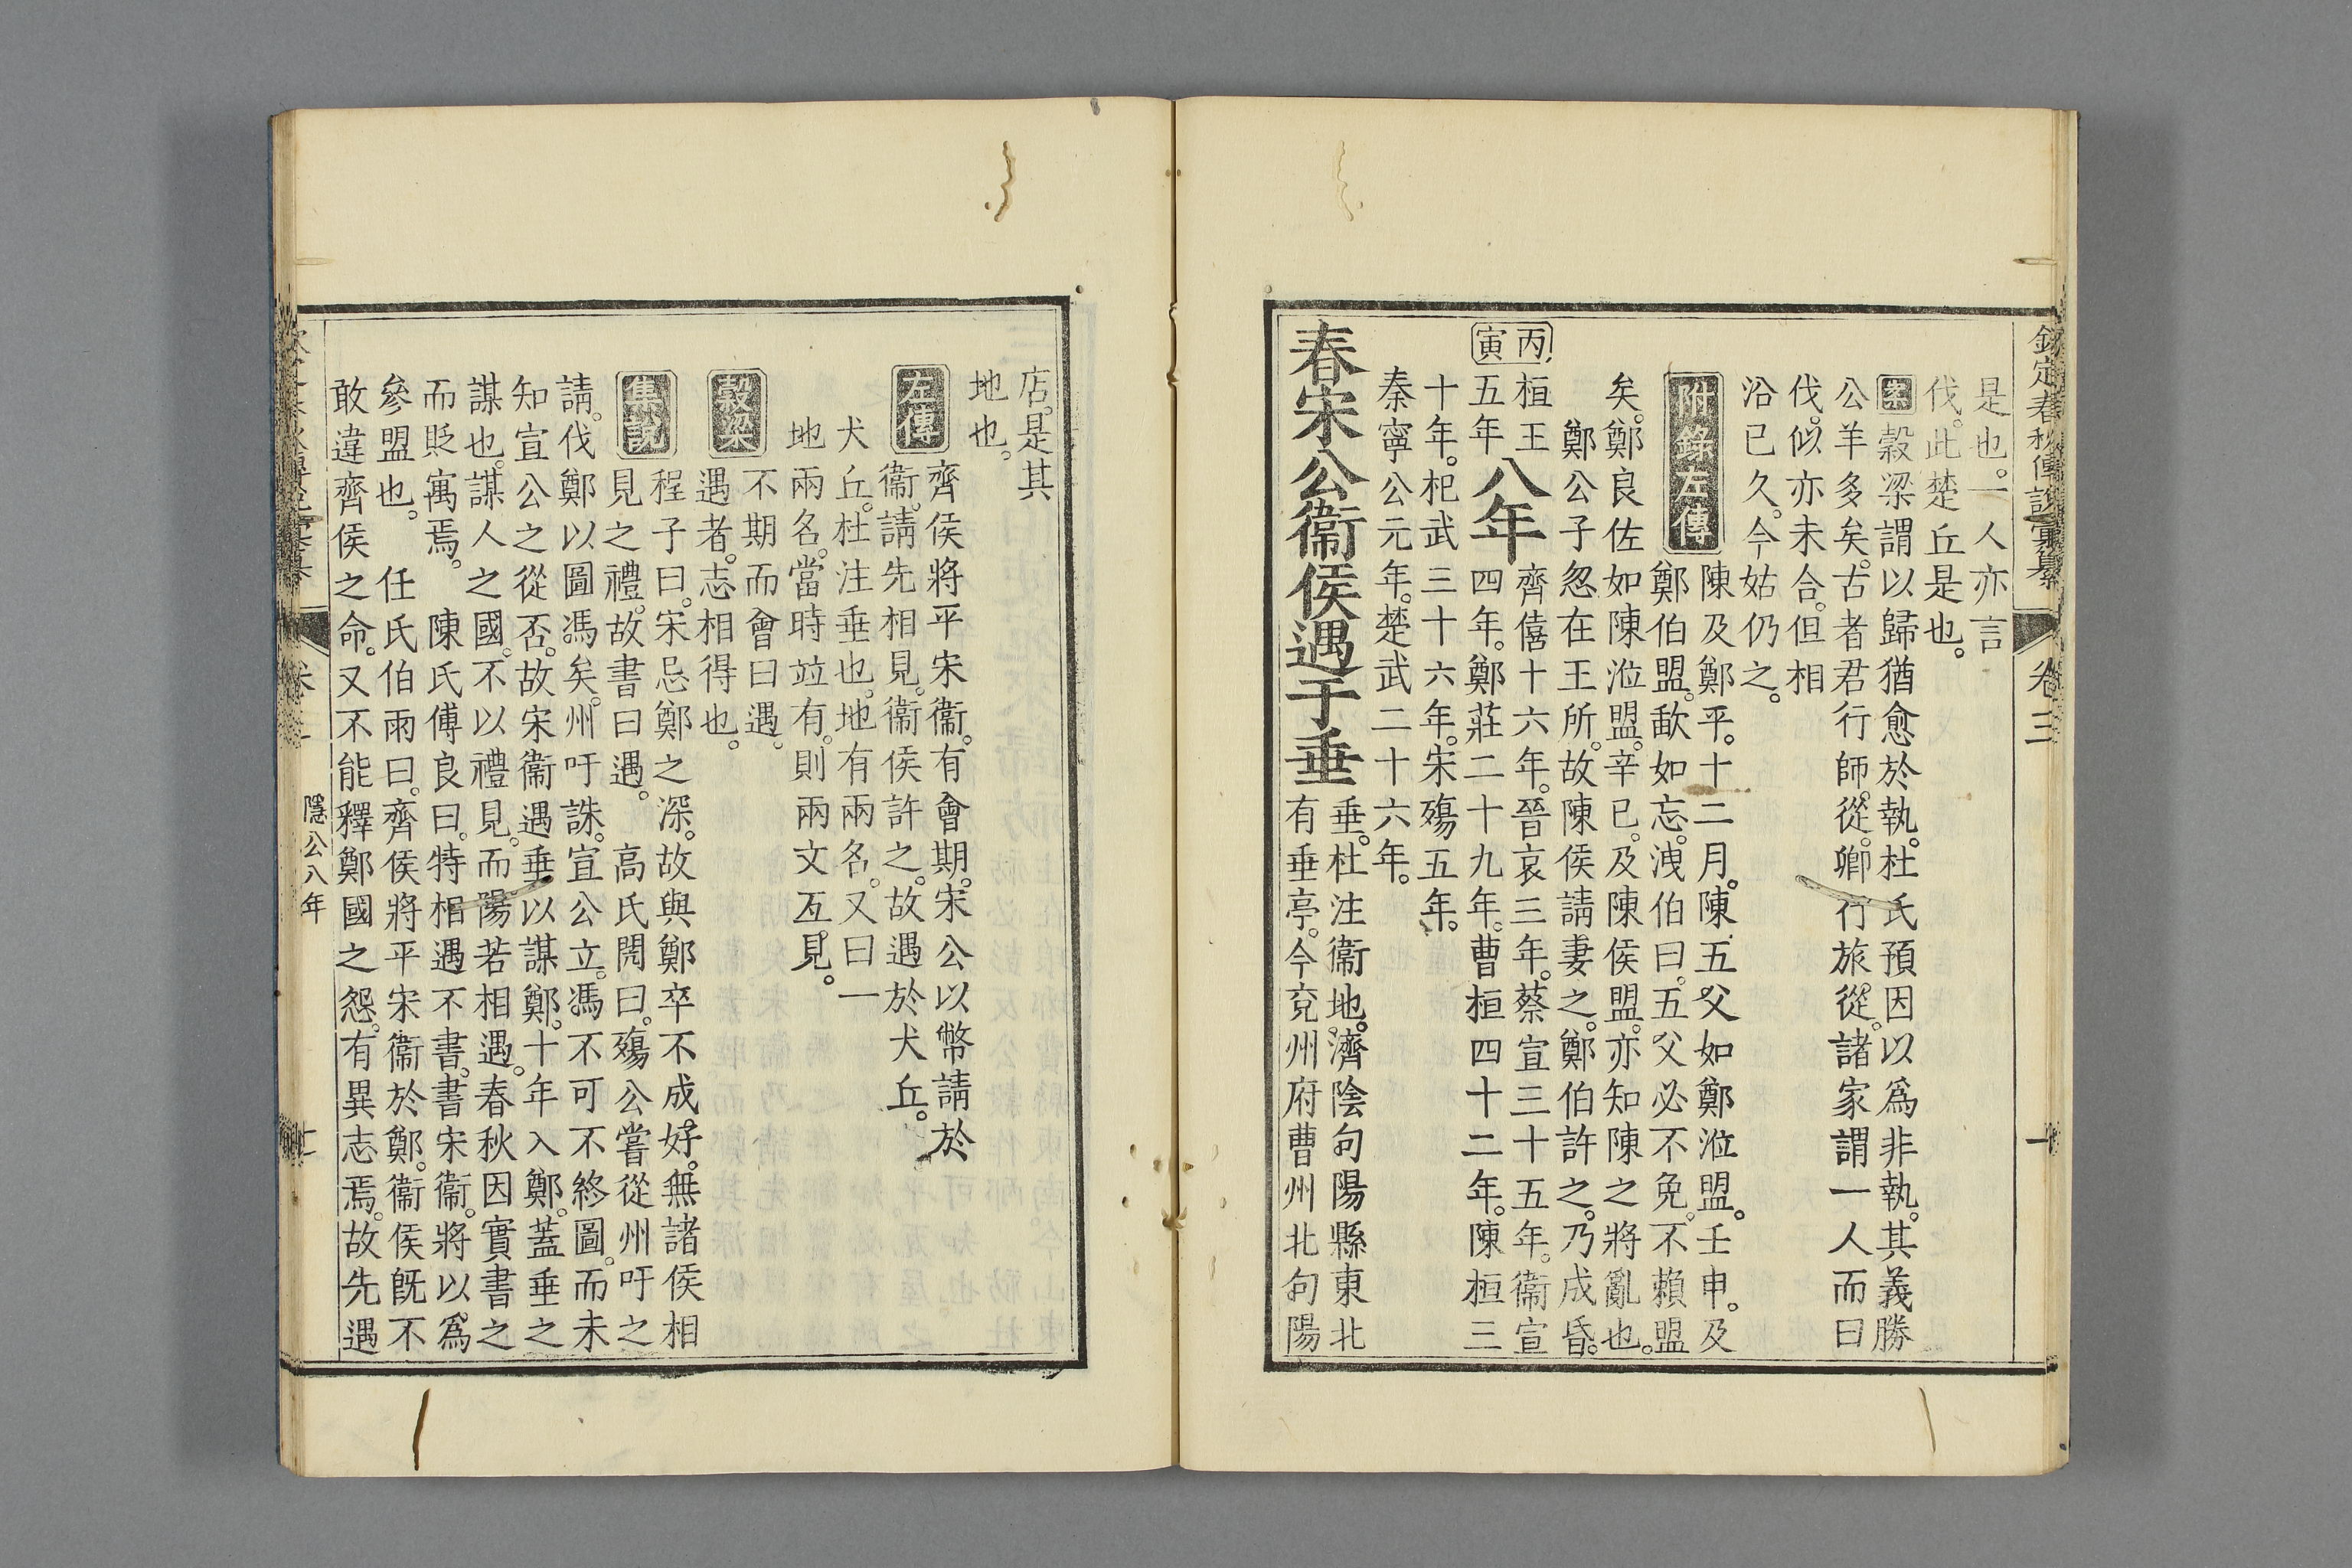 欽定春秋傳說彙纂 卷三 十
是也。一人亦言
伐。此楚丘是也。
案 穀梁謂以歸猶愈於執。杜氏預因以爲非執。其義勝
公羊多矣。古者君行師。從。卿行旅。從。諸家謂一人而曰
伐。似亦未合。但相
沿已久。今姑仍之。
附錄左傳 陳及鄭平。十二月。陳五父如鄭涖盟。壬申。及
鄭伯盟。歃如忘。洩伯曰。五父必不免。不賴盟
矣。鄭良佐如陳涖盟。辛巳。及陳侯盟。亦知陳之將亂也。
鄭公子忽在王所。故陳侯請妻之。鄭伯許之。乃成昏。
丙寅
桓王
五年
八年
齊僖十六年。晉哀三年。蔡宣三十五年。衞宣
四年。鄭莊二十九年。曹桓四十二年。陳桓三
十年。杞武三十六年。宋殤五年。
秦寧公元年。楚武二十六年。
春宋公衞侯遇于垂
垂。杜注衞地。濟陰句陽縣東北
有垂亭。今兗州府曹州北句陽
店。是其
地也。
左傳 齊侯將平宋衞。有會期。宋公以幣請於
衞。請先相見。衞侯許之。故遇於犬丘。
犬丘。杜注垂也。地有兩名。又曰一
地兩名。當時竝有。則兩文互見。
穀梁 不期而會曰遇。
遇者。志相得也。
集說 程子曰。宋忌鄭之深。故與鄭卒不成好。無諸侯相
見之禮。故書曰遇。 高氏閌曰。殤公嘗從州吁之
請。伐鄭以圖馮矣。州吁誅。宣公立。馮不可不終圖。而未
知宣公之從否。故宋衞遇垂以謀鄭。十年入鄭。蓋垂之
謀也。謀人之國。不以禮見。而陽若相遇。春秋因實書之
而貶寓焉。 陳氏傅良曰。特相遇不書。書宋衞。將以爲
參盟也。 任氏伯雨曰。齊侯將平宋衞於鄭。衞侯旣不
敢違齊侯之命。又不能釋鄭國之怨。有異志焉。故先遇
隱公八年